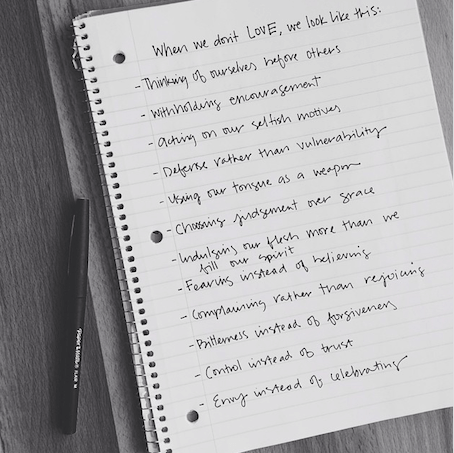 When we don't LOVE, we look like this:
- Thinking of ourselves before others
- Withholding encouragement
- acting on our selfish motives
- Defense rather than vulnerability
- Using our tongue as a weapon
- Choosing judgement over grace
- Indulging our flesh more than we
fill our spirit
- Fearing instead of believing
- Complaining rather than rejoicing
- Bitterness instead of forgiveness
- Control instead of trust
- Envy instead of celebrating
Paper Mate FLAIR M